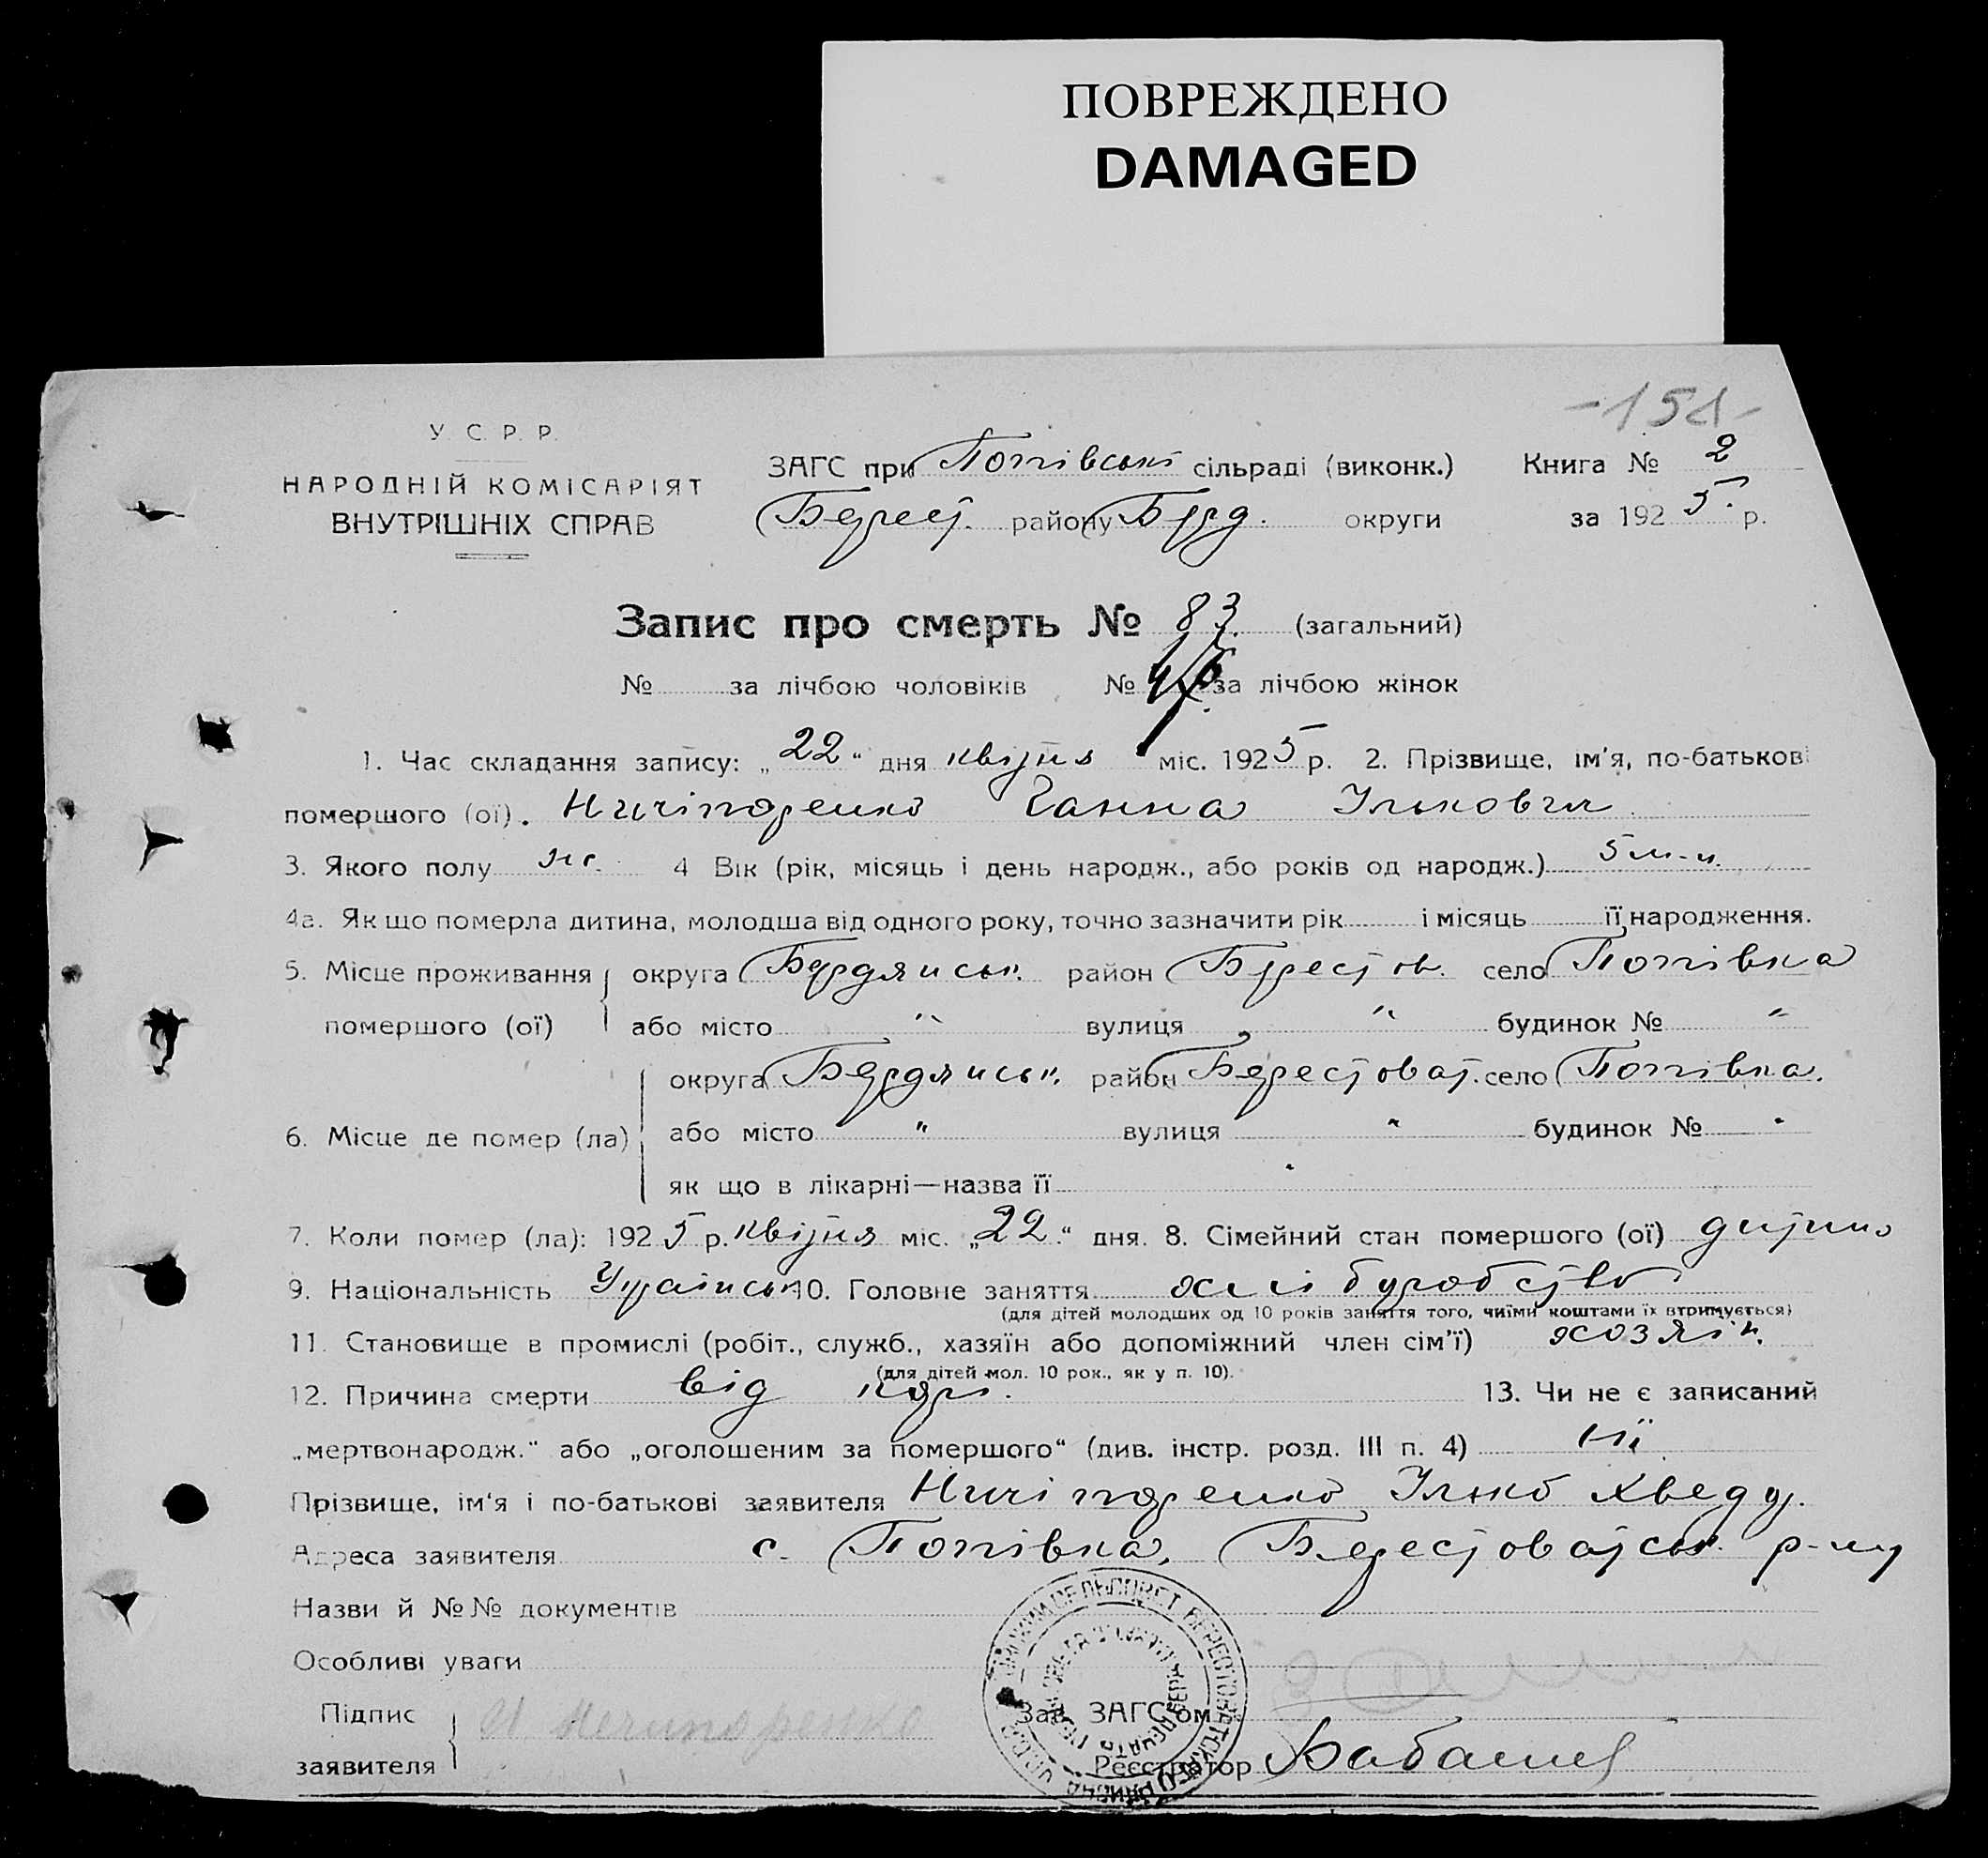 ПОВРЕЖДЕНО
DAMAGED
-151-
У. С. Р. Р.
НАРОДНІЙ КОМІСАРІЯТ
ВНУТРІШНІХ СПРАВ
ЗАГС при Попівські сільраді (виконк.) Книга № 2
Берест. району Берд. округи за 1925 р.
Запис про смерть № 83. (загальний)
№ за лічбою чоловіків № за лічбою жінок
1. Час складання запису: „22“ дня квітня міс. 1925 р. 2. Прізвище, ім'я, по-батькові
помершого (ої). Ничіпоренко Ганна Ільковна
3. Якого полу ж. 4 Вік (рік, місяць і день народж., або років од народж.) 5 м-ц.
4а. Як що померла дитина, молодша від одного року, точно зазначити рік і місяць її народження.
5. Місце проживання округа Бердянськ. район Берестов. село Попівка
помершого (ої) або місто " вулиця " будинок № "
округа Бердянськ. район Берестоват. село Попівка.
6. Місце де помер (ла) або місто " вулиця " будинок № "
як що в лікарні—назва її
7. Коли помер (ла): 1925 р. квітня міс. „22“ дня. 8. Сімейний стан помершого (ої) дитина
9. Національність Українськ 10. Головне заняття хліборобство
(для дітей молодших од 10 років заняття того, чиїми коштами їх втримується)
11. Становище в промислі (робіт., служб., хазяїн або допоміжний член сім'ї) хозяїн.
(для дітей мол. 10 рок., як у п. 10).
12. Причина смерти від корі. 13. Чи не є записаний
„мертвонародж.“ або „оголошеним за помершого“ (див. інстр. розд. III п. 4) Ні
Прізвище, ім'я і по-батькові заявителя Ничіпоренко Ілько Хведор.
Адреса заявителя с. Попівка, Берестоватськ. р-ну
Назви й №№ документів
Особливі уваги
Підпис
заявителя И Ничипоренко
Зав. ЗАГС'ом
Реєстратор